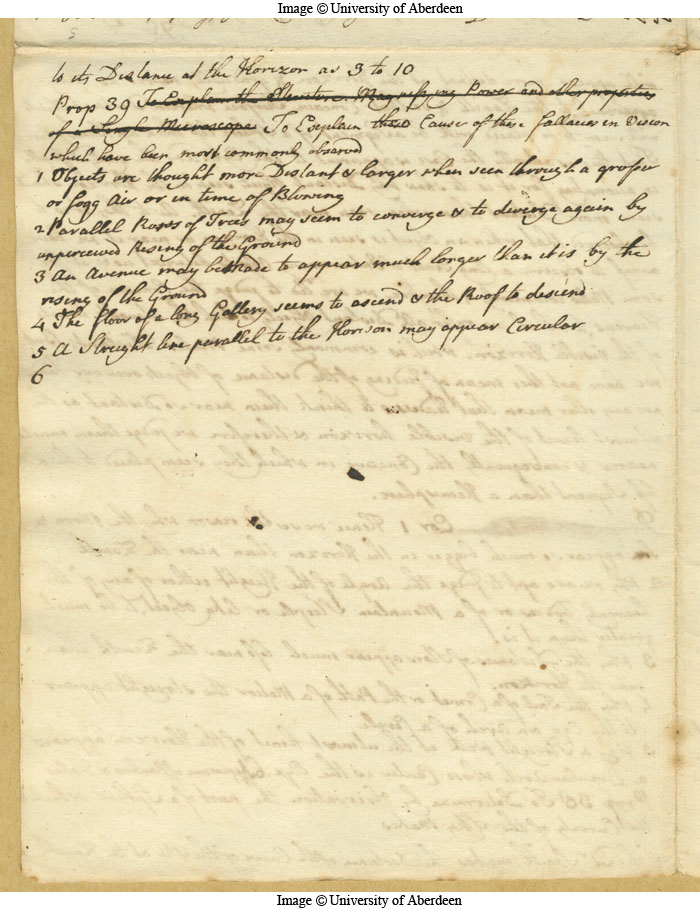 Image © University of Aberdeen
to its Distance at the Horizon as 3 to 10
Prop 39 To Explain the Structure Magnifying Power and other properties
of a Single Microscope To Explain the Cause of these fallacies in Vision
which have been most commonly observed
1 Objects are thought more Distant & larger when seen through a grosser
or fogg Air or in time of Blowing
2 Parallel Rows of Trees may seem to converge & to diverge again by
unperceived Rising of the Ground
3 An Avenue may be made to appear much longer than it is by the
rising of the Ground
4 The floor of a long Gallery seems to ascend & the Roof to descend
5 A Streight line parallel to the Horison may appear Circular
6
Image © University of Aberdeen